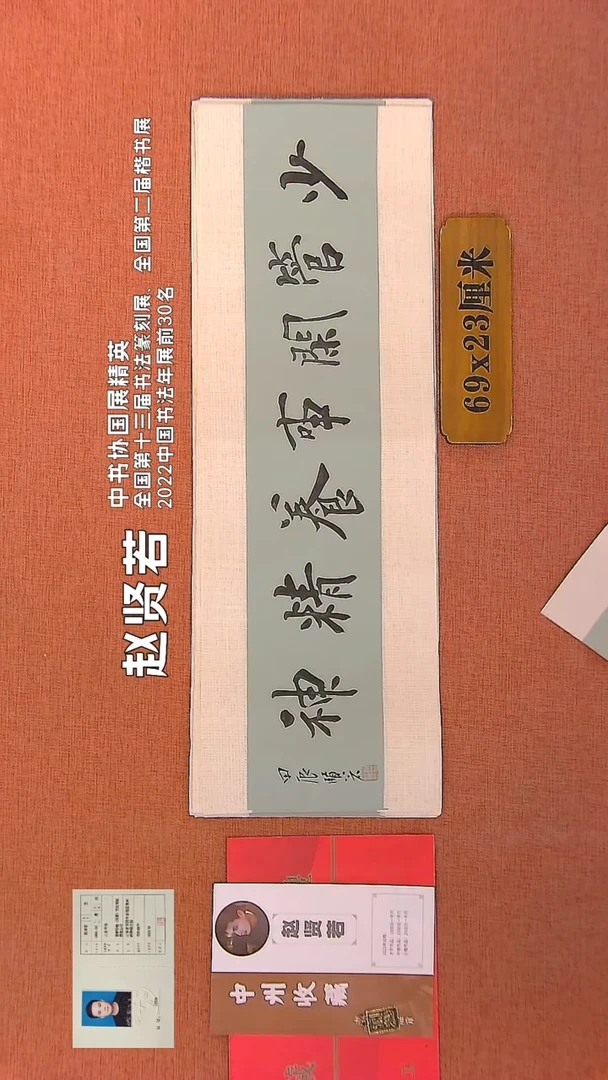 赵贤若
中书协国展精英
全国第十三届书法篆刻展、全国第二届楷书展
2022中国书法年展前30名
少管閑事養精神
甲辰賢若
69x23厘米
赵贤若
中州收藏